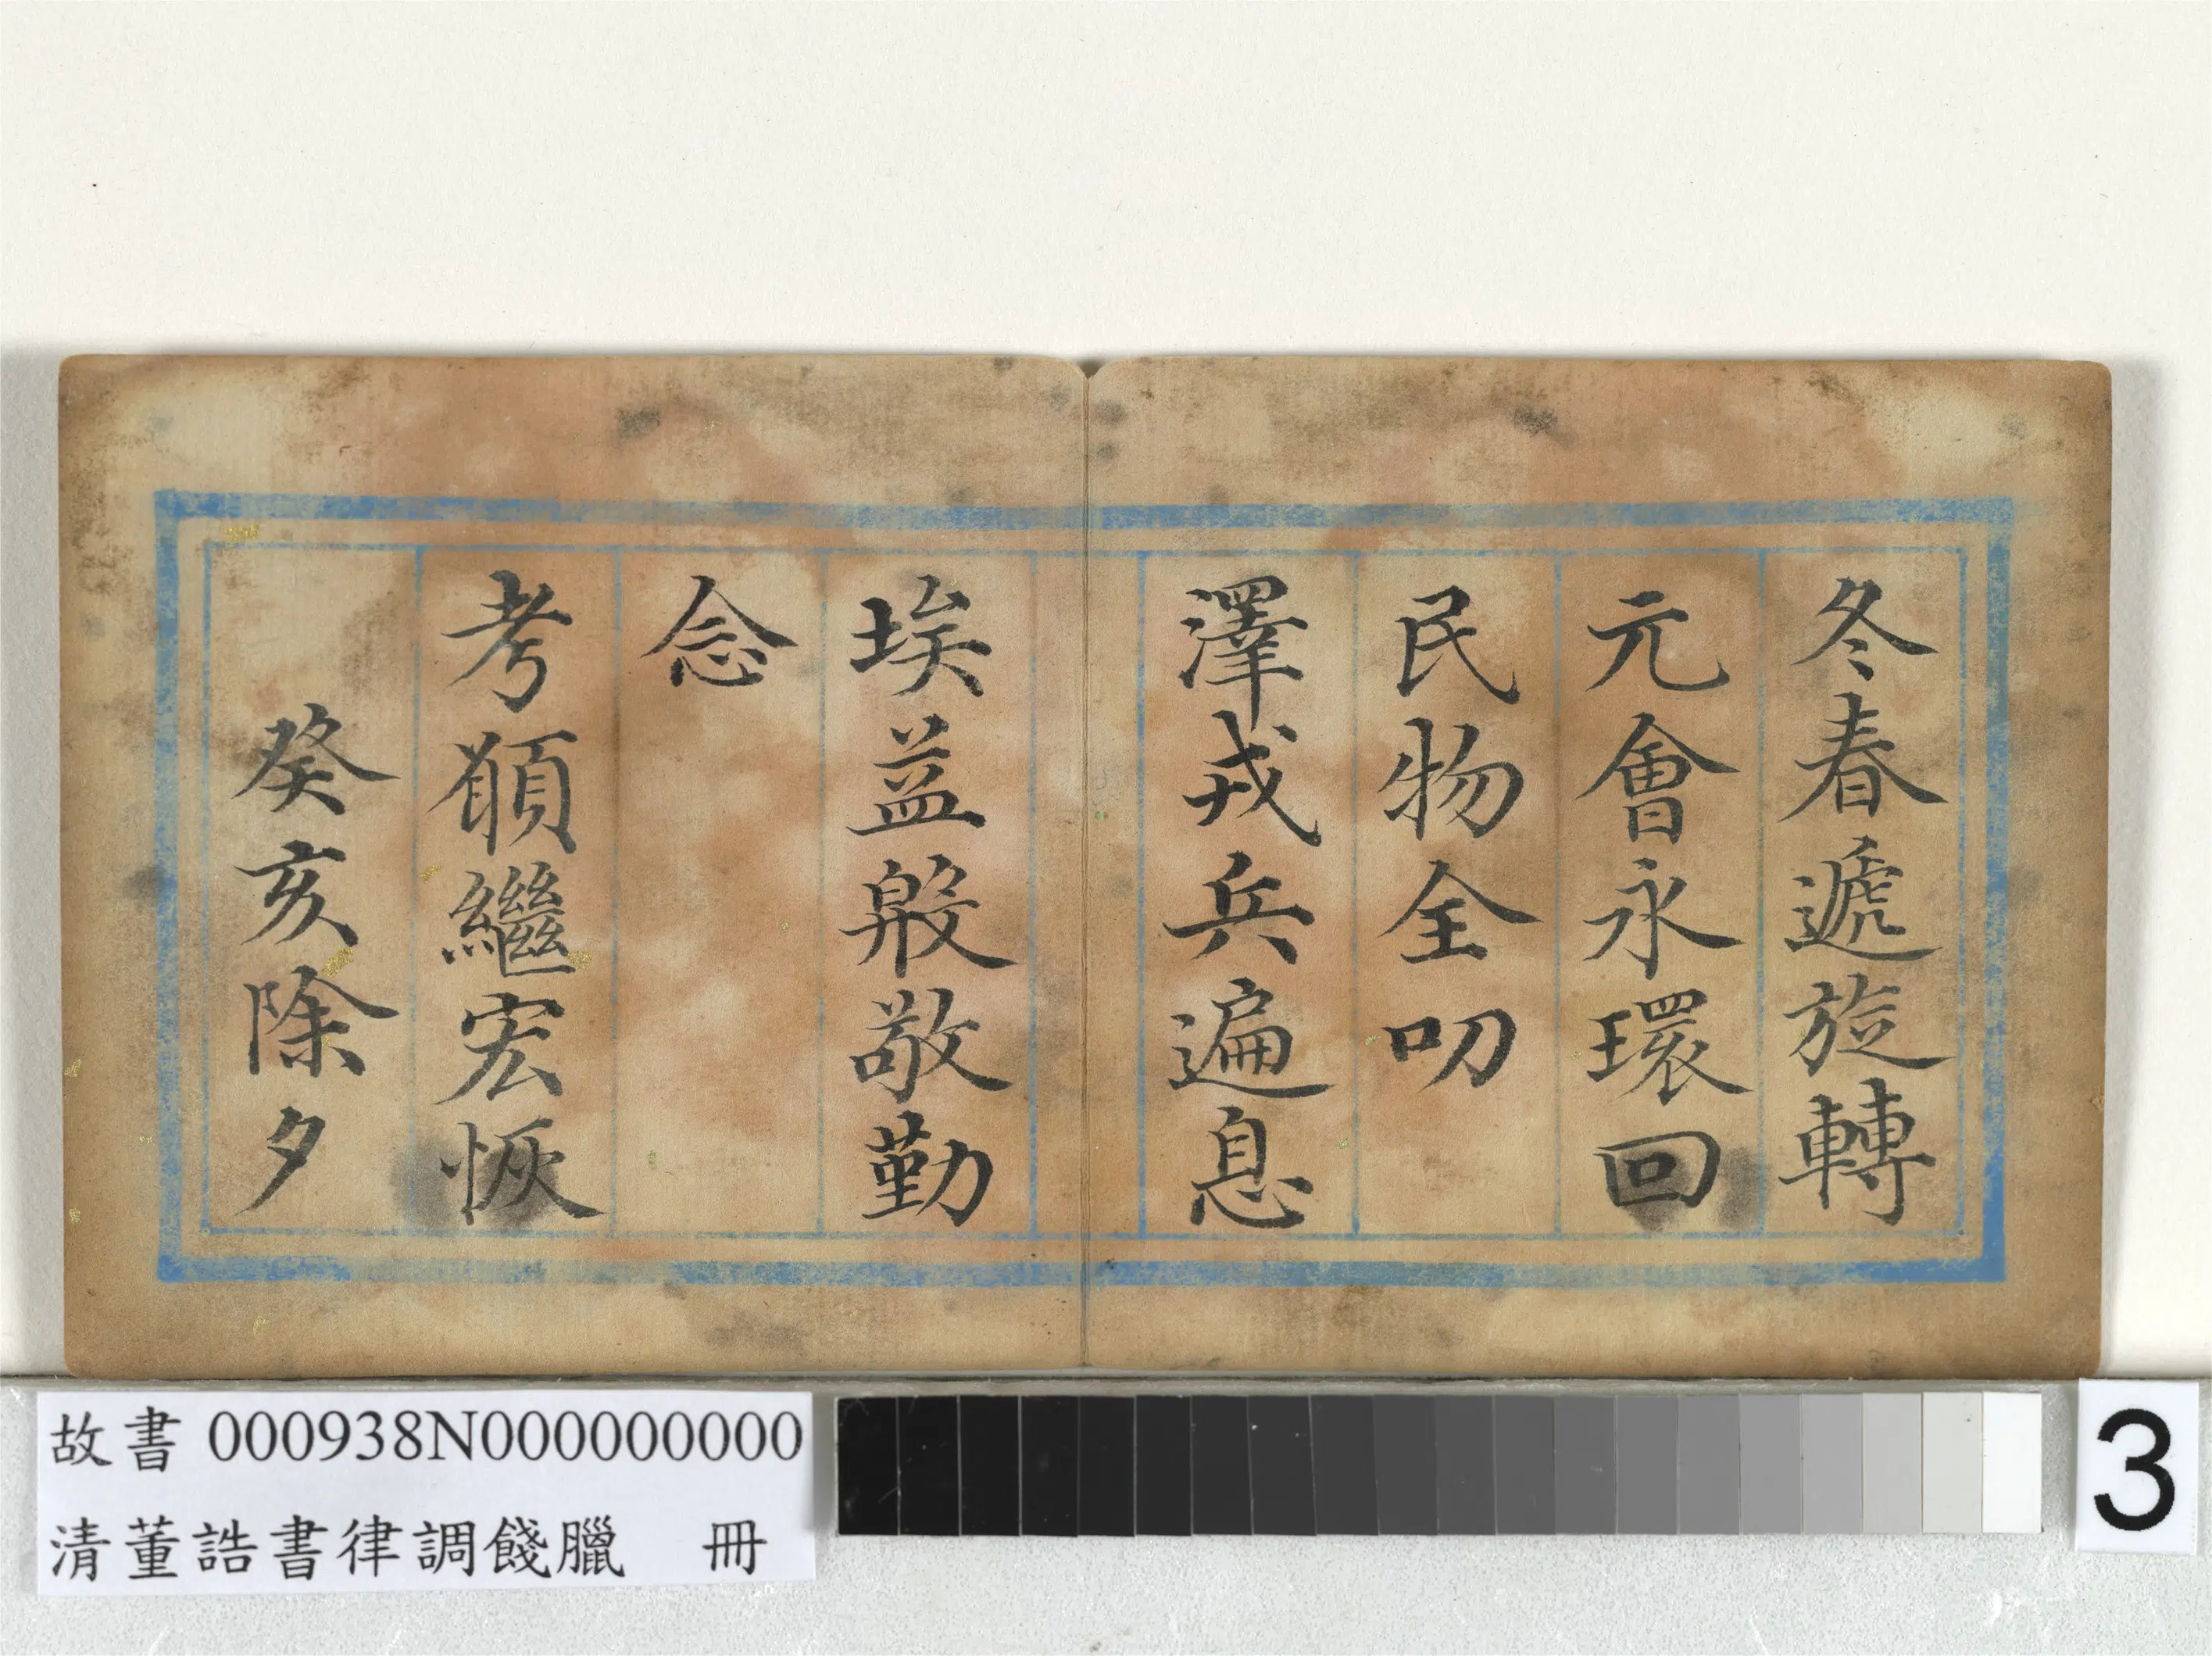 冬春遞旋轉
元會永環回
民物全叨
澤戎兵遍息
埃益殷敬勤
念
考願繼宏恢
癸亥除夕
故書 000938N000000000
清董誥書律調餞臘 冊
3